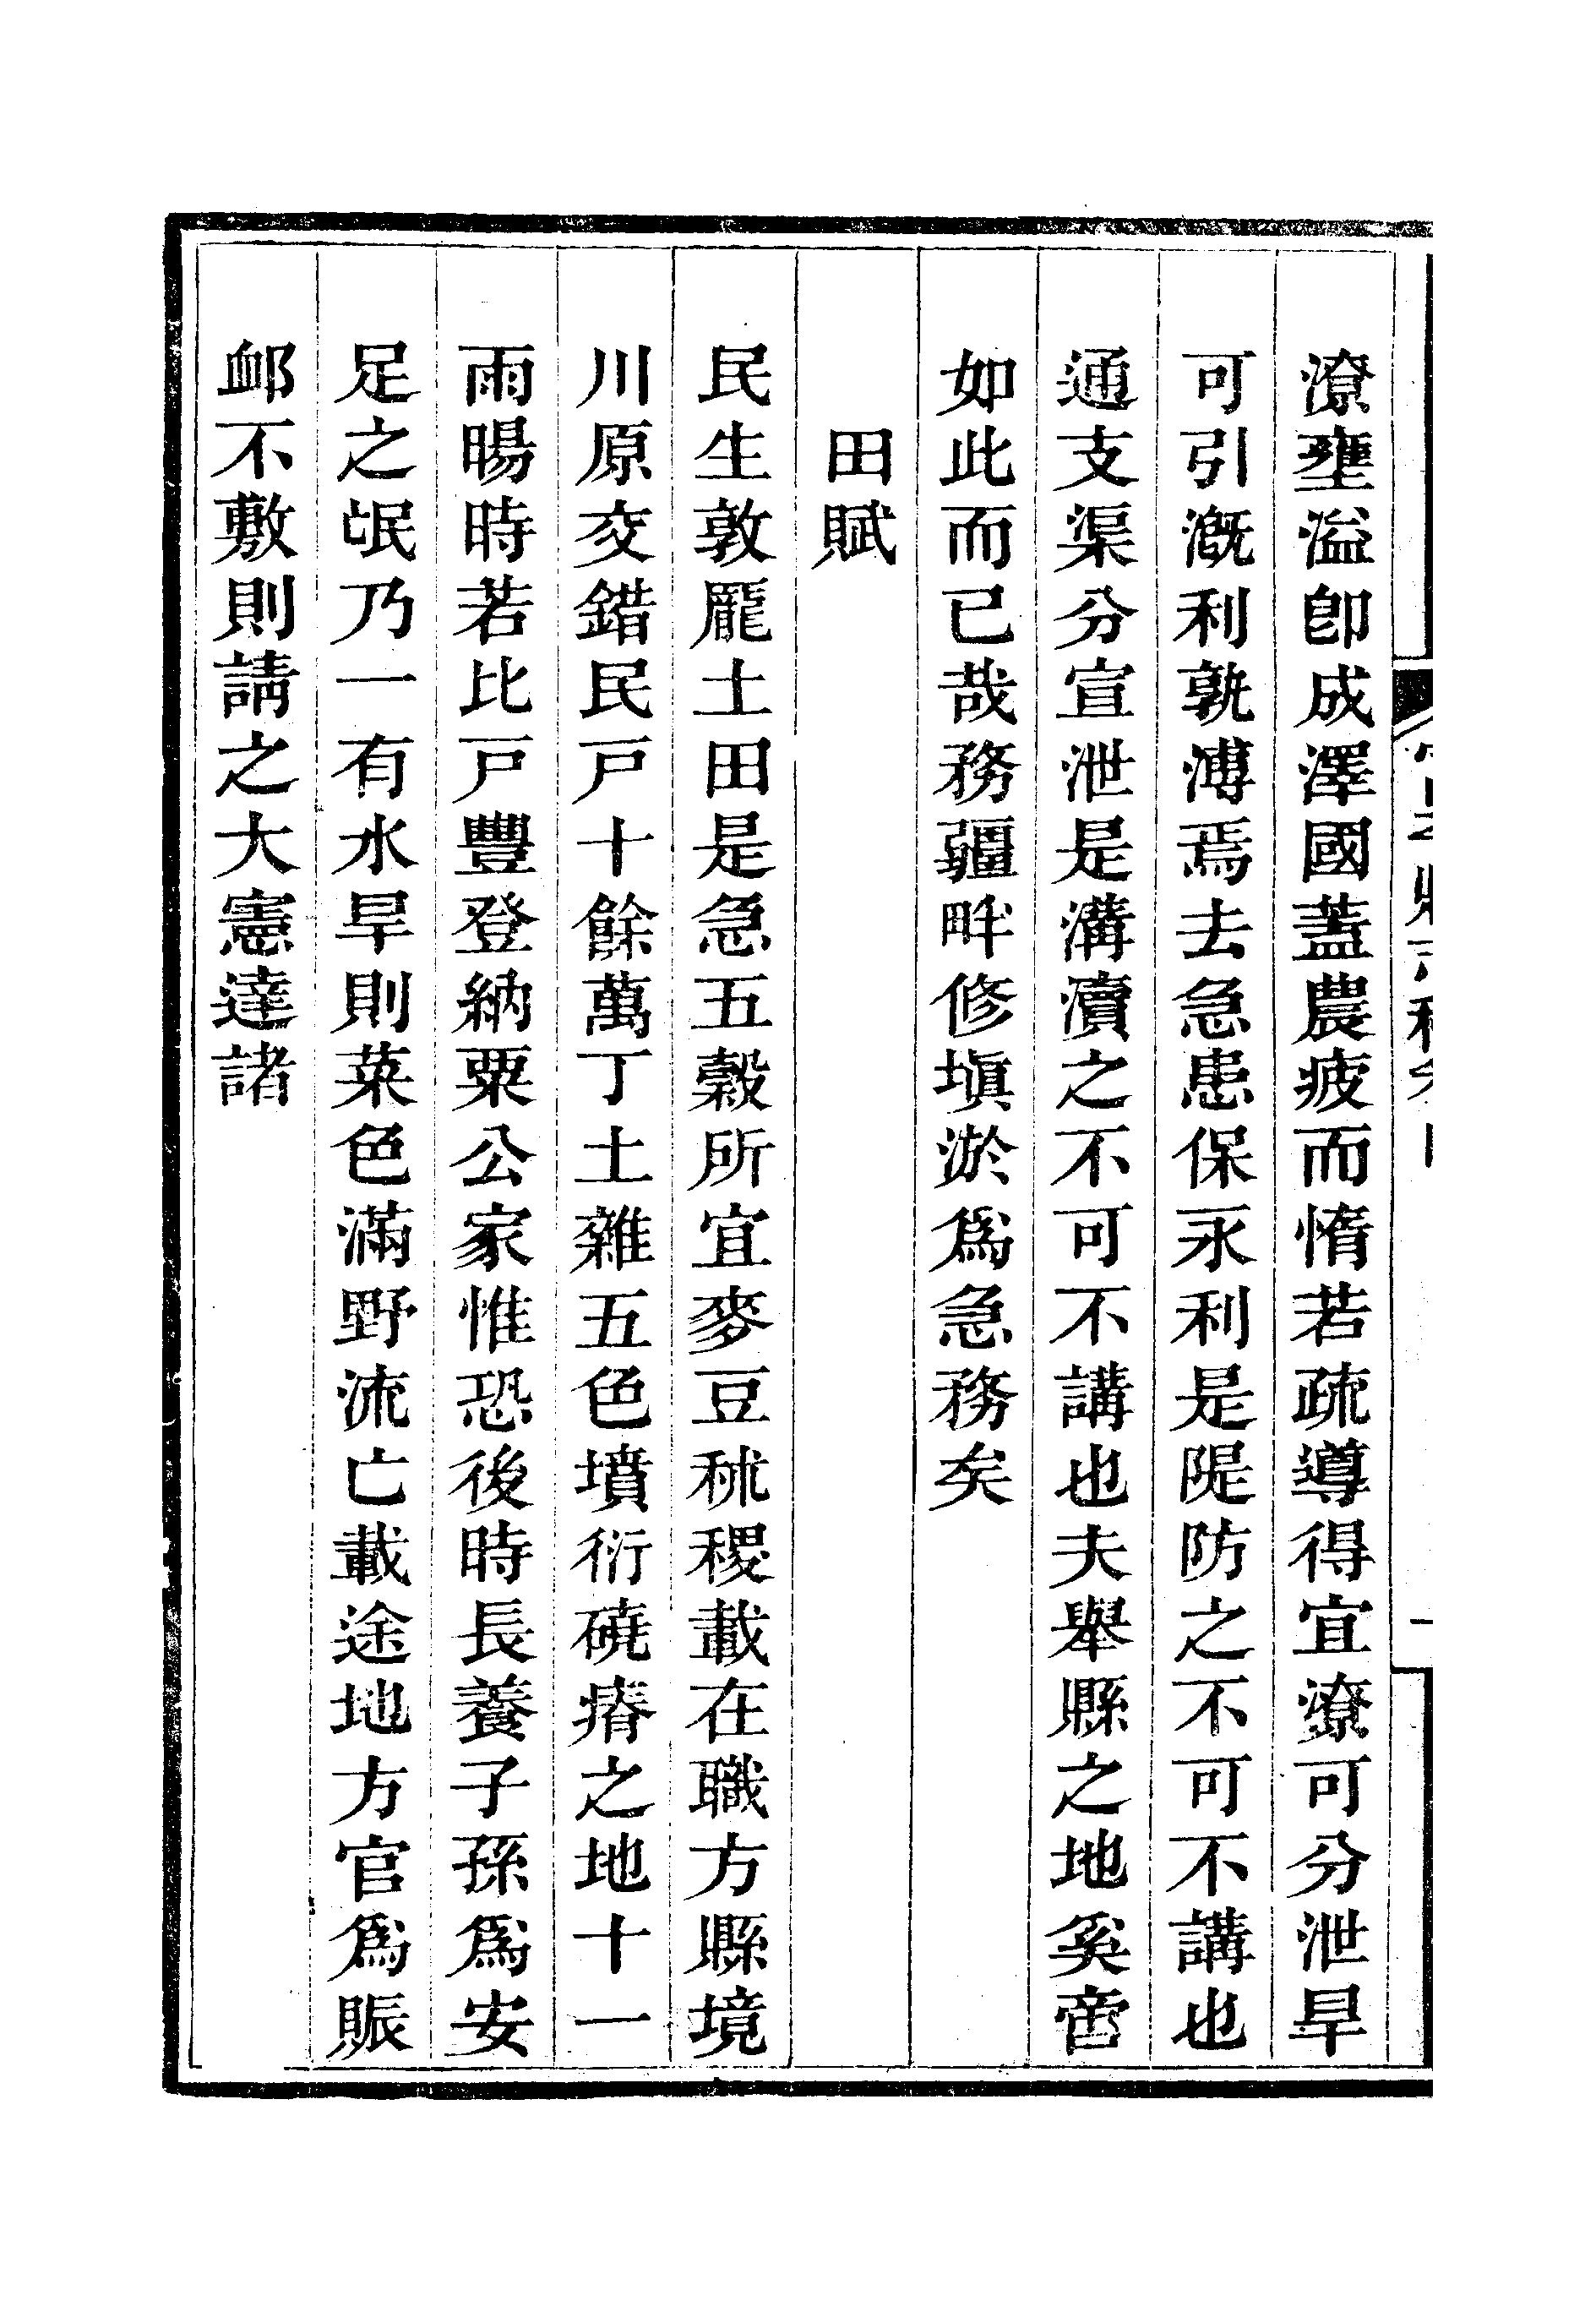 潦壅溢卽成澤國蓋農疲而惰若疏導得宜潦可分泄旱
可引漑利孰溥焉去急患保永利是隄防之不可不講也
通支渠分宣泄是溝瀆之不可不講也夫舉縣之地奚啻
如此而已哉務疆畔修塡淤爲急務矣
田賦
民生敦龐土田是急五穀所宜麥豆秫稷載在職方縣境
川原交錯民戸十餘萬丁土雜五色墳衍磽瘠之地十一
雨暘時若比戸豐登納粟公家惟恐後時長養子孫爲安
足之氓乃一有水旱則菜色滿野流亡載途地方官爲賑
卹不敷則請之大憲達諸